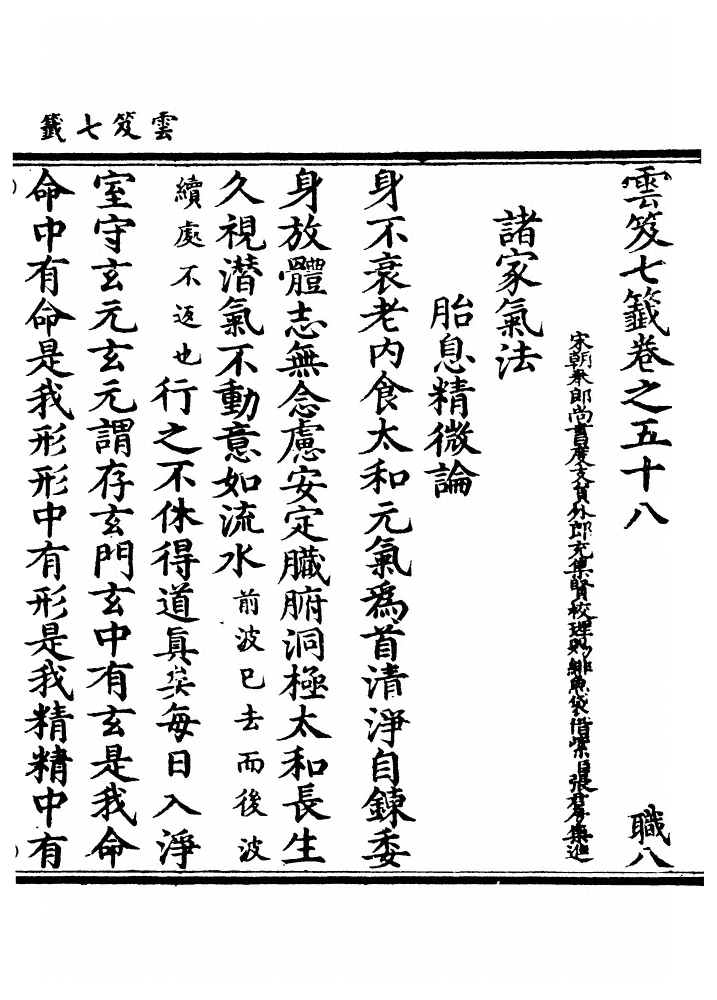 雲笈七籤
雲笈七籤卷之五十八 職八
宋朝奉郎尚書度支員外郎充集賢校理賜緋魚袋借紫臣張君房集進
諸家氣法
胎息精微論
身不衰老內食太和元氣爲首清淨自鍊委
身放體志無念慮安定臟腑洞極太和長生
久視潛氣不動意如流水前波已去而後波
續處不返也行之不休得道眞矣每日入淨
室守玄元玄元謂存玄門玄中有玄是我命
命中有命是我形形中有形是我精精中有